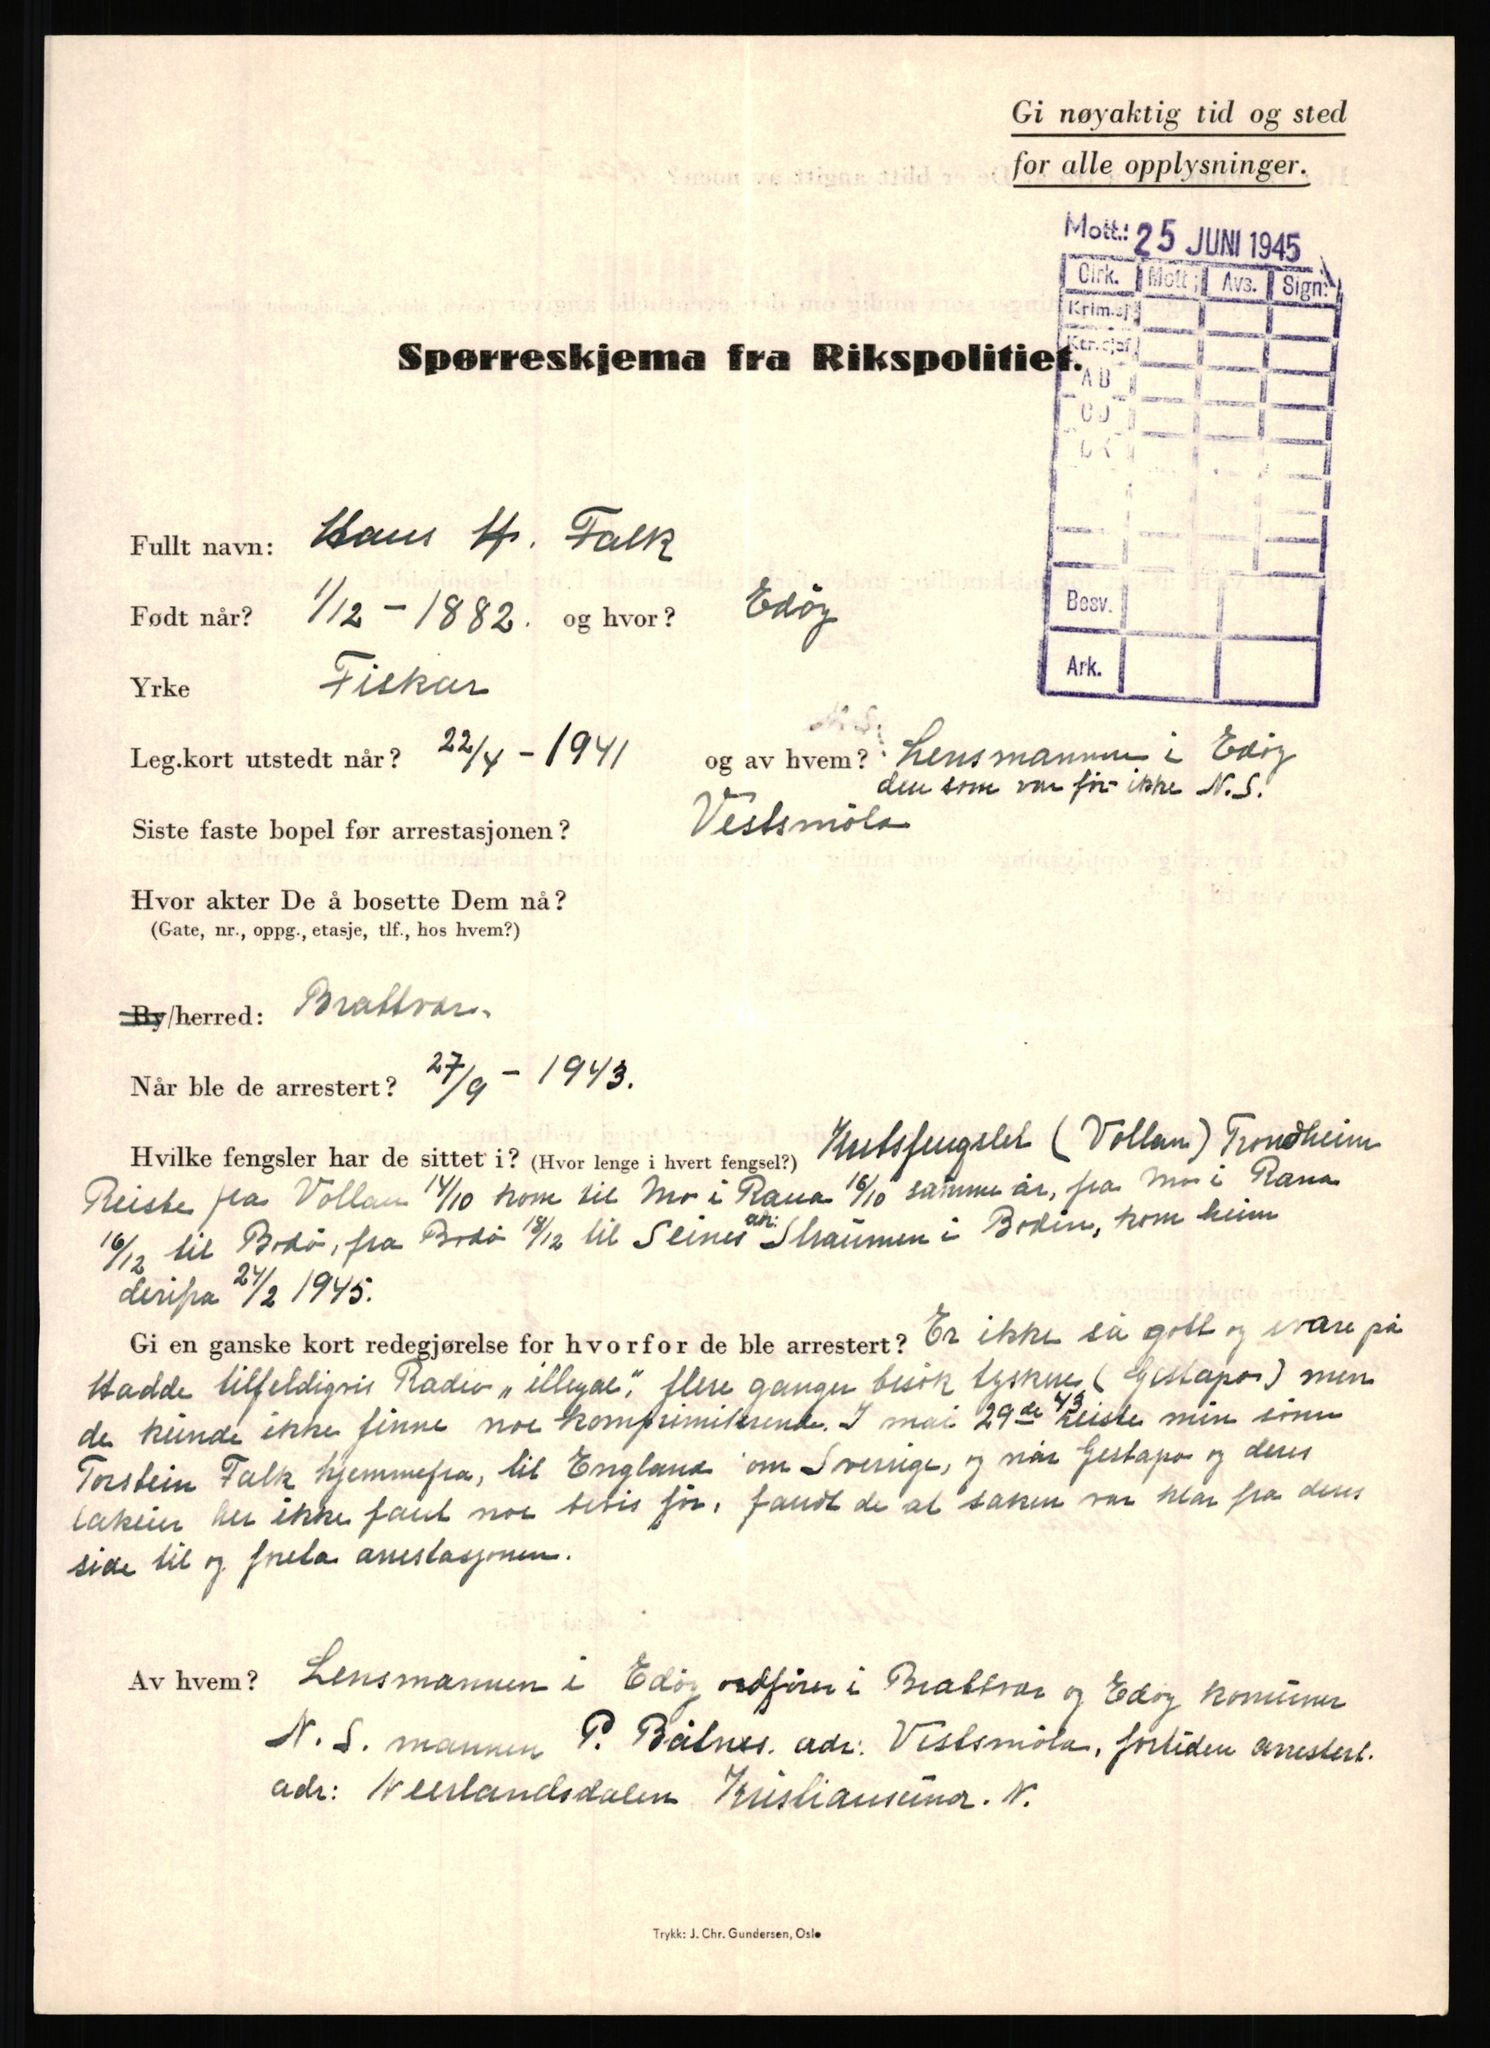 Gi nøyaktig tid og sted
for alle opplysninger.
Mott.: 25 JUNI 1945
Cirk. Mott.; Avs. Sign:
Krim.sj.
Ktr.sjef.
AB
CD
Besv.
Ark.
Spørreskjema fra Rikspolitiet.
Fullt navn: Hans H. Falk
Født når? 1/12 - 1882. og hvor? Edöy
Yrke Fiskar
Leg.kort utstedt når? 22/4 - 1941 og av hvem? Lensmannen i Edöy
den som var för ikke N.S.
Siste faste bopel før arrestasjonen? Vestsmöla
Hvor akter De å bosette Dem nå?
(Gate, nr., oppg., etasje, tlf., hos hvem?)
By/herred: Brattvær.
Når ble de arrestert? 27/9 - 1943.
Hvilke fengsler har de sittet i? (Hvor lenge i hvert fengsel?) Kretsfengslet (Vollan) Trondheim
Reiste fra Vollan 14/10 kom til Mo i Rana 16/10 samme år, fra Mo i Rana
16/12 til Bodö, fra Bodö 18/12 til Seines adr: Straumen i Bodin, kom heim
derifra 24/2 1945.
Gi en ganske kort redegjørelse for hvorfor de ble arrestert? Er ikke så gott og svare på
Hadde tilfeldigvis Radio „illegal", flere ganger besök tyskere (Gestapo) men
de kunde ikke finne noe komprimiterende. I mai 29de 43 reiste min sönn
Torstein Falk hjemmefra, til England om Sverige, og når Gestapo og deres
lakeier her ikke fant noe bevis för, fandt de at saken var klar fra deres
side til og foreta arrestasjonen.
Av hvem? Lensmannen i Edöy ordförer i Brattvær og Edöy komuner
N.S. mannen P. Båtnes. adr: Vestsmöla, fortiden arrestert.
adr: Neerlandsdalen Kristiansund. N.
Trykk: J. Chr. Gundersen, Oslo